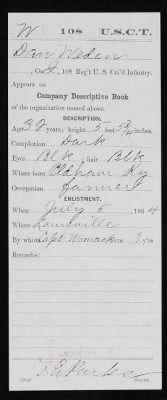 W 108 U.S.C.T.
Dan Weden
Co. L, 108 Reg't U. S. Col'd Infantry.
Appears on
Company Descriptive Book
of the organization named above.
DESCRIPTION.
Age 32 years; height 5 feet inches.
Complexion Dark
Eyes Blk, hair Blk
Where born Oldham Ky
Occupation Farmer
ENLISTMENT.
When July 5, 1864
Where Louisville
By whom Capt Womack; term 3 y'rs
Remarks: